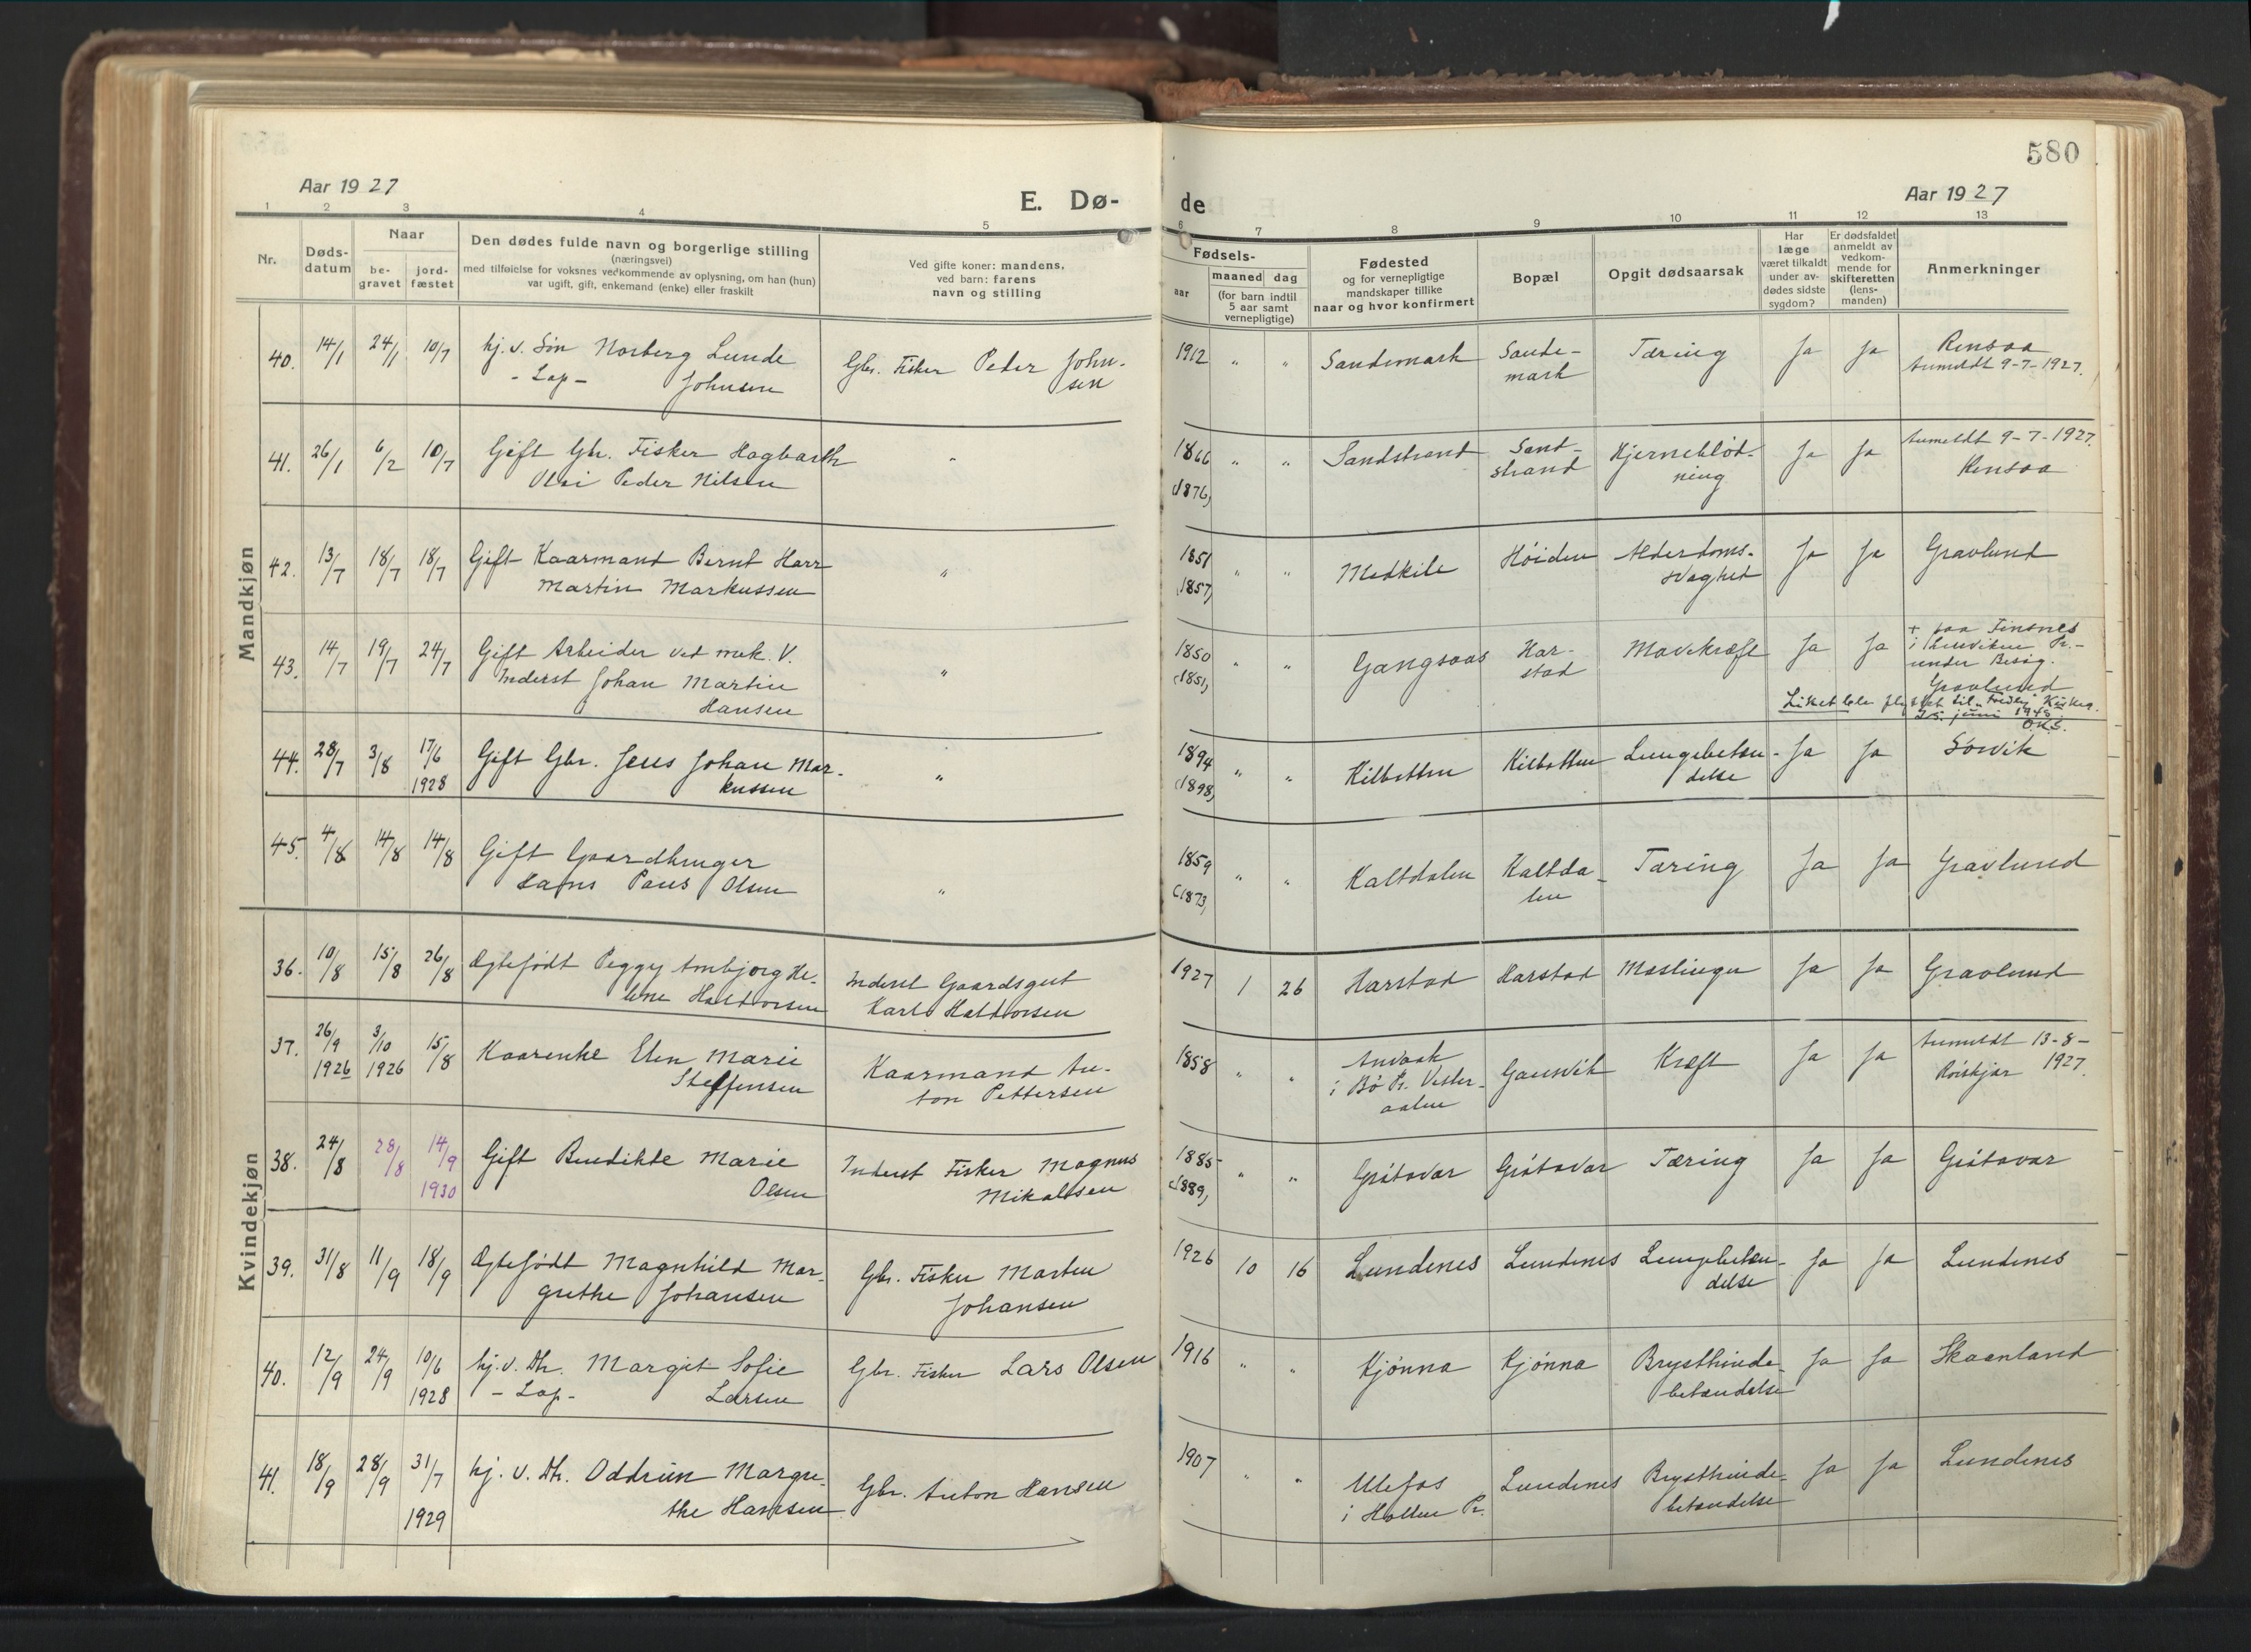 580
Aar 1927
E. Dø-
de
Aar 1927
1 2 3 4 5 6 7 8 9 10 11 12 13
Nr.
Døds-
datum
Naar
be-
gravet
jord-
fæstet
Den dødes fulde navn og borgerlige stilling
(næringsvei)
med tilføielse for voksnes vedkommende av oplysning, om han (hun)
var ugift, gift, enkemand (enke) eller fraskilt
Ved gifte koner: mandens,
ved barn: farens
navn og stilling
Fødsels-
aar
maaned dag
(for barn indtil
5 aar samt
vernepligtige)
Fødested
og for vernepligtige
mandskaper tillike
naar og hvor konfirmert
Bopæl
Opgit dødsaarsak
Har
læge
været tilkaldt
under av-
dødes sidste
sygdom?
Er dødsfaldet
anmeldt av
vedkom-
mende for
skifteretten
(lens-
manden)
Anmerkninger
Mandkjøn
40. 14/1 24/1 10/7 hj. v. Søn Norberg Lunde
- Lap - Johnsen
Gbr. Fisker Peder John-
sen
1912 " " Sandemark Sande-
mark
Tæring Ja Ja Rensaa
Anmeldt 9-7-1927.
41. 26/1 6/2 10/7 Gift Gbr. Fisker Hagbarth
Olai Peder Nilsen
"
1866
(1876)
" " Sandstrand Sand-
strand
Hjerneblød-
ning
Ja Ja Anmeldt 9-7-1927.
Rensaa
42. 13/7 18/7 18/7 Gift Kaarmand Bernt Harr
Martin Markussen
"
1851
(1857)
" " Medkile Høiden Alderdoms-
svaghet
Ja Ja Gravlund
43. 14/7 19/7 24/7 Gift Arbeider ved mek. V.
Inderst Johan Martin
Hansen
"
1850
(1851)
" " Gangsaas Har-
stad
Mavekræft Ja Ja + paa Finsnes
i Lenviken Pr.-
under Besøg.
Gravlund
Liket ble flyttet til Trondenes Kirkeg.
25. juni 1948.
O.K.S.
44. 28/7 3/8 17/6
1928
Gift Gbr. Jens Johan Mar-
kussen
"
1894
(1898)
" " Kilbotten Kilbotten Lungebetæn-
delse
Ja Ja Sørvik
45. 4/8 14/8 14/8 Gift Gaardbruger
Hans Paus Olsen
"
1859
(1873)
" " Kaltdalen Kaltda-
len
Tæring Ja Ja Gravlund
Kvindekjøn
36. 10/8 15/8 26/8 Ægtefødt Peggy Ambjørg He-
lene Haldorsen
Inderst Gaardsgut
Karl Haldorsen
1927 1 26 Harstad Harstad Mæslinger Ja Ja Gravlund
37. 26/9
1926
3/10
1926
15/8 Kaarenke Elen Marie
Steffensen
Kaarmand An-
ton Pettersen
1858 " " Anvaak
i Bø Pr. Vester-
aalen
Gausvik Kræft Ja Ja Anmeldt 13-8-
1927.
Røiskjær
38. 24/8 28/8 14/9
1930
Gift Benedikte Marie
Olsen
Inderst Fisker Magnus
Mikalsen
1885
(1889)
" " Grøtavær Grøtavær Tæring Ja Ja Grøtavær
39. 31/8 11/9 18/9 Ægtefødt Magnhild Mar-
grethe Johansen
Gbr. Fisker Morten
Johansen
1926 10 16 Lundenes Lundenes Lungebetæn-
delse
Ja Ja Lundenes
40. 12/9 24/9 10/6
1928
hj. v. Dtr. Margit Sofie
- Lap - Larsen
Gbr. Fisker Lars Olsen
1916 " " Kjønna Kjønna Brysthinde-
betændelse
Ja Ja Skaanland
41. 18/9 28/9 31/7
1929
hj. v. Dtr. Oddrun Margre-
the Hansen
Gbr. Anton Hansen
1907 " " Ulefos
i Hollen Pr.
Lundenes Brysthinde-
betændelse
Ja Ja Lundenes